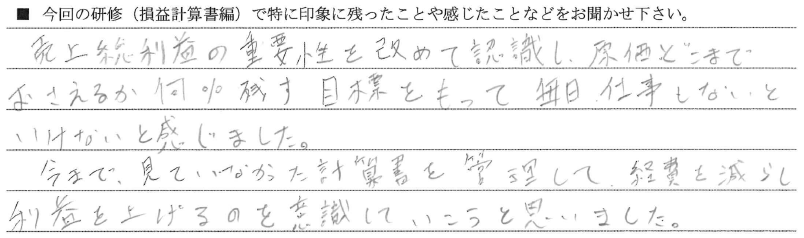 ■ 今回の研修（損益計算書編）で特に印象に残ったことや感じたことなどをお聞かせ下さい。
売上総利益の重要性を改めて認識し、原価どこまで
おさえるか何%残す目標をもって毎日、仕事しないと
いけないと感じました。
今まで、見ていなかった計算書を管理して、経費を減らし
利益を上げるのを意識していこうと思いました。